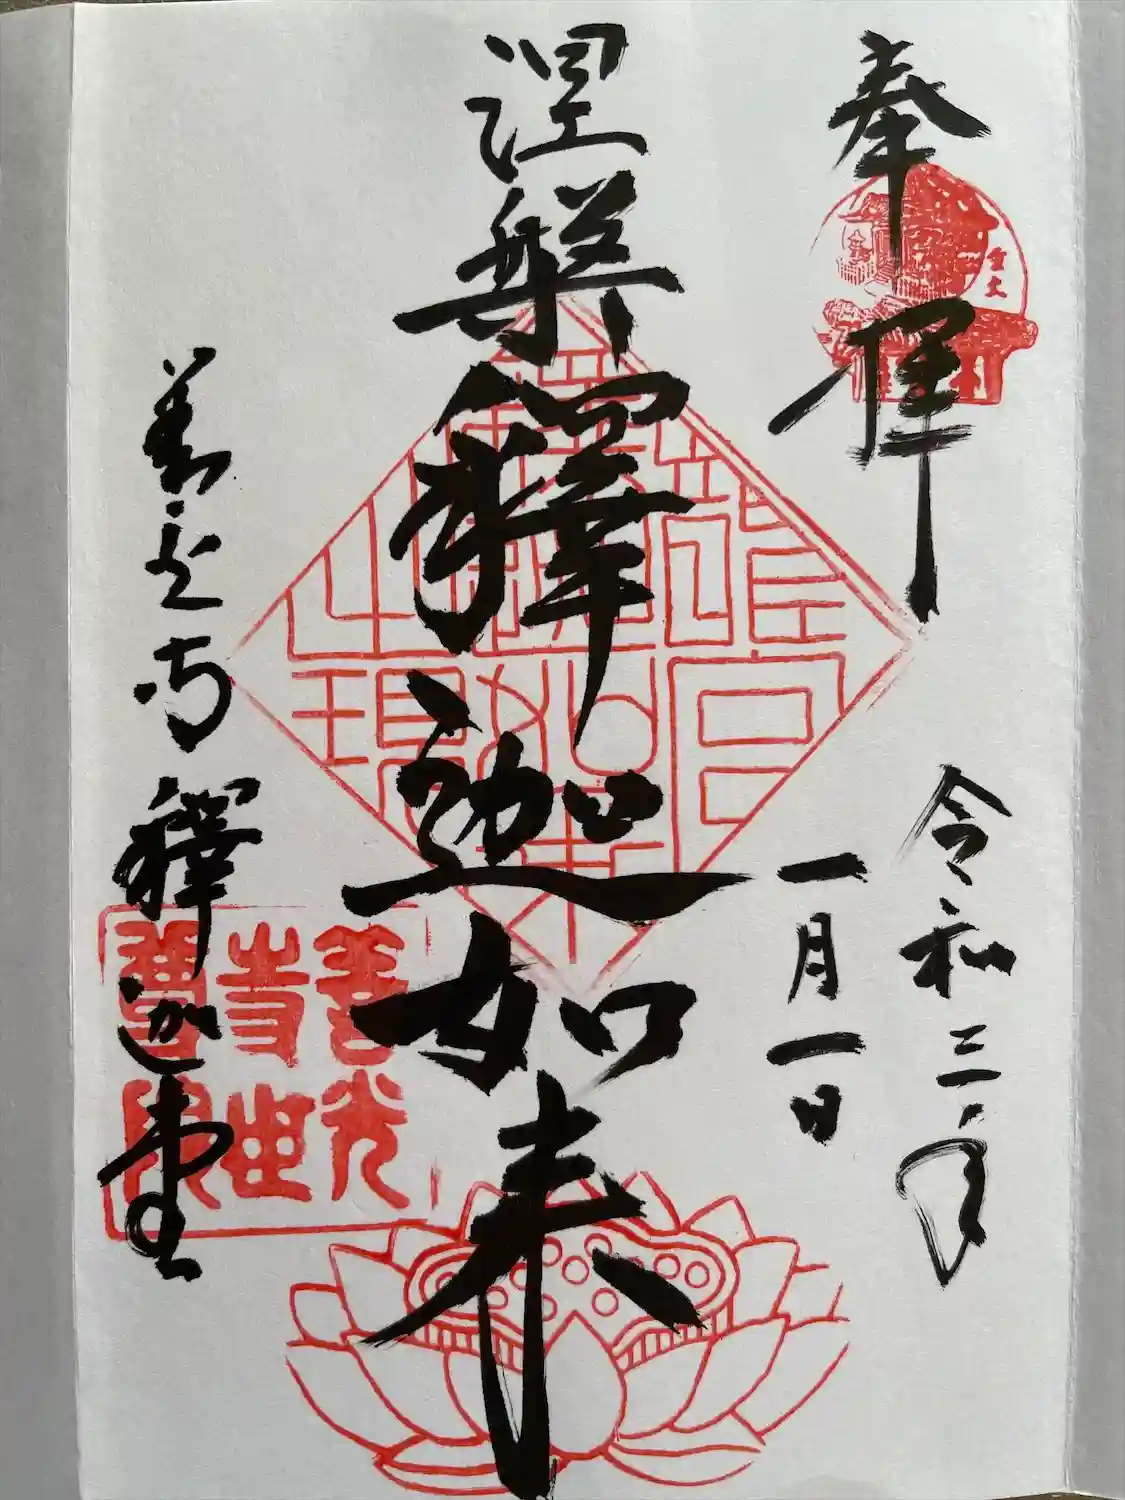 奉拝
令和三年
一月一日
涅槃釋迦如来
善光寺釋迦堂
善光
寺世
尊院